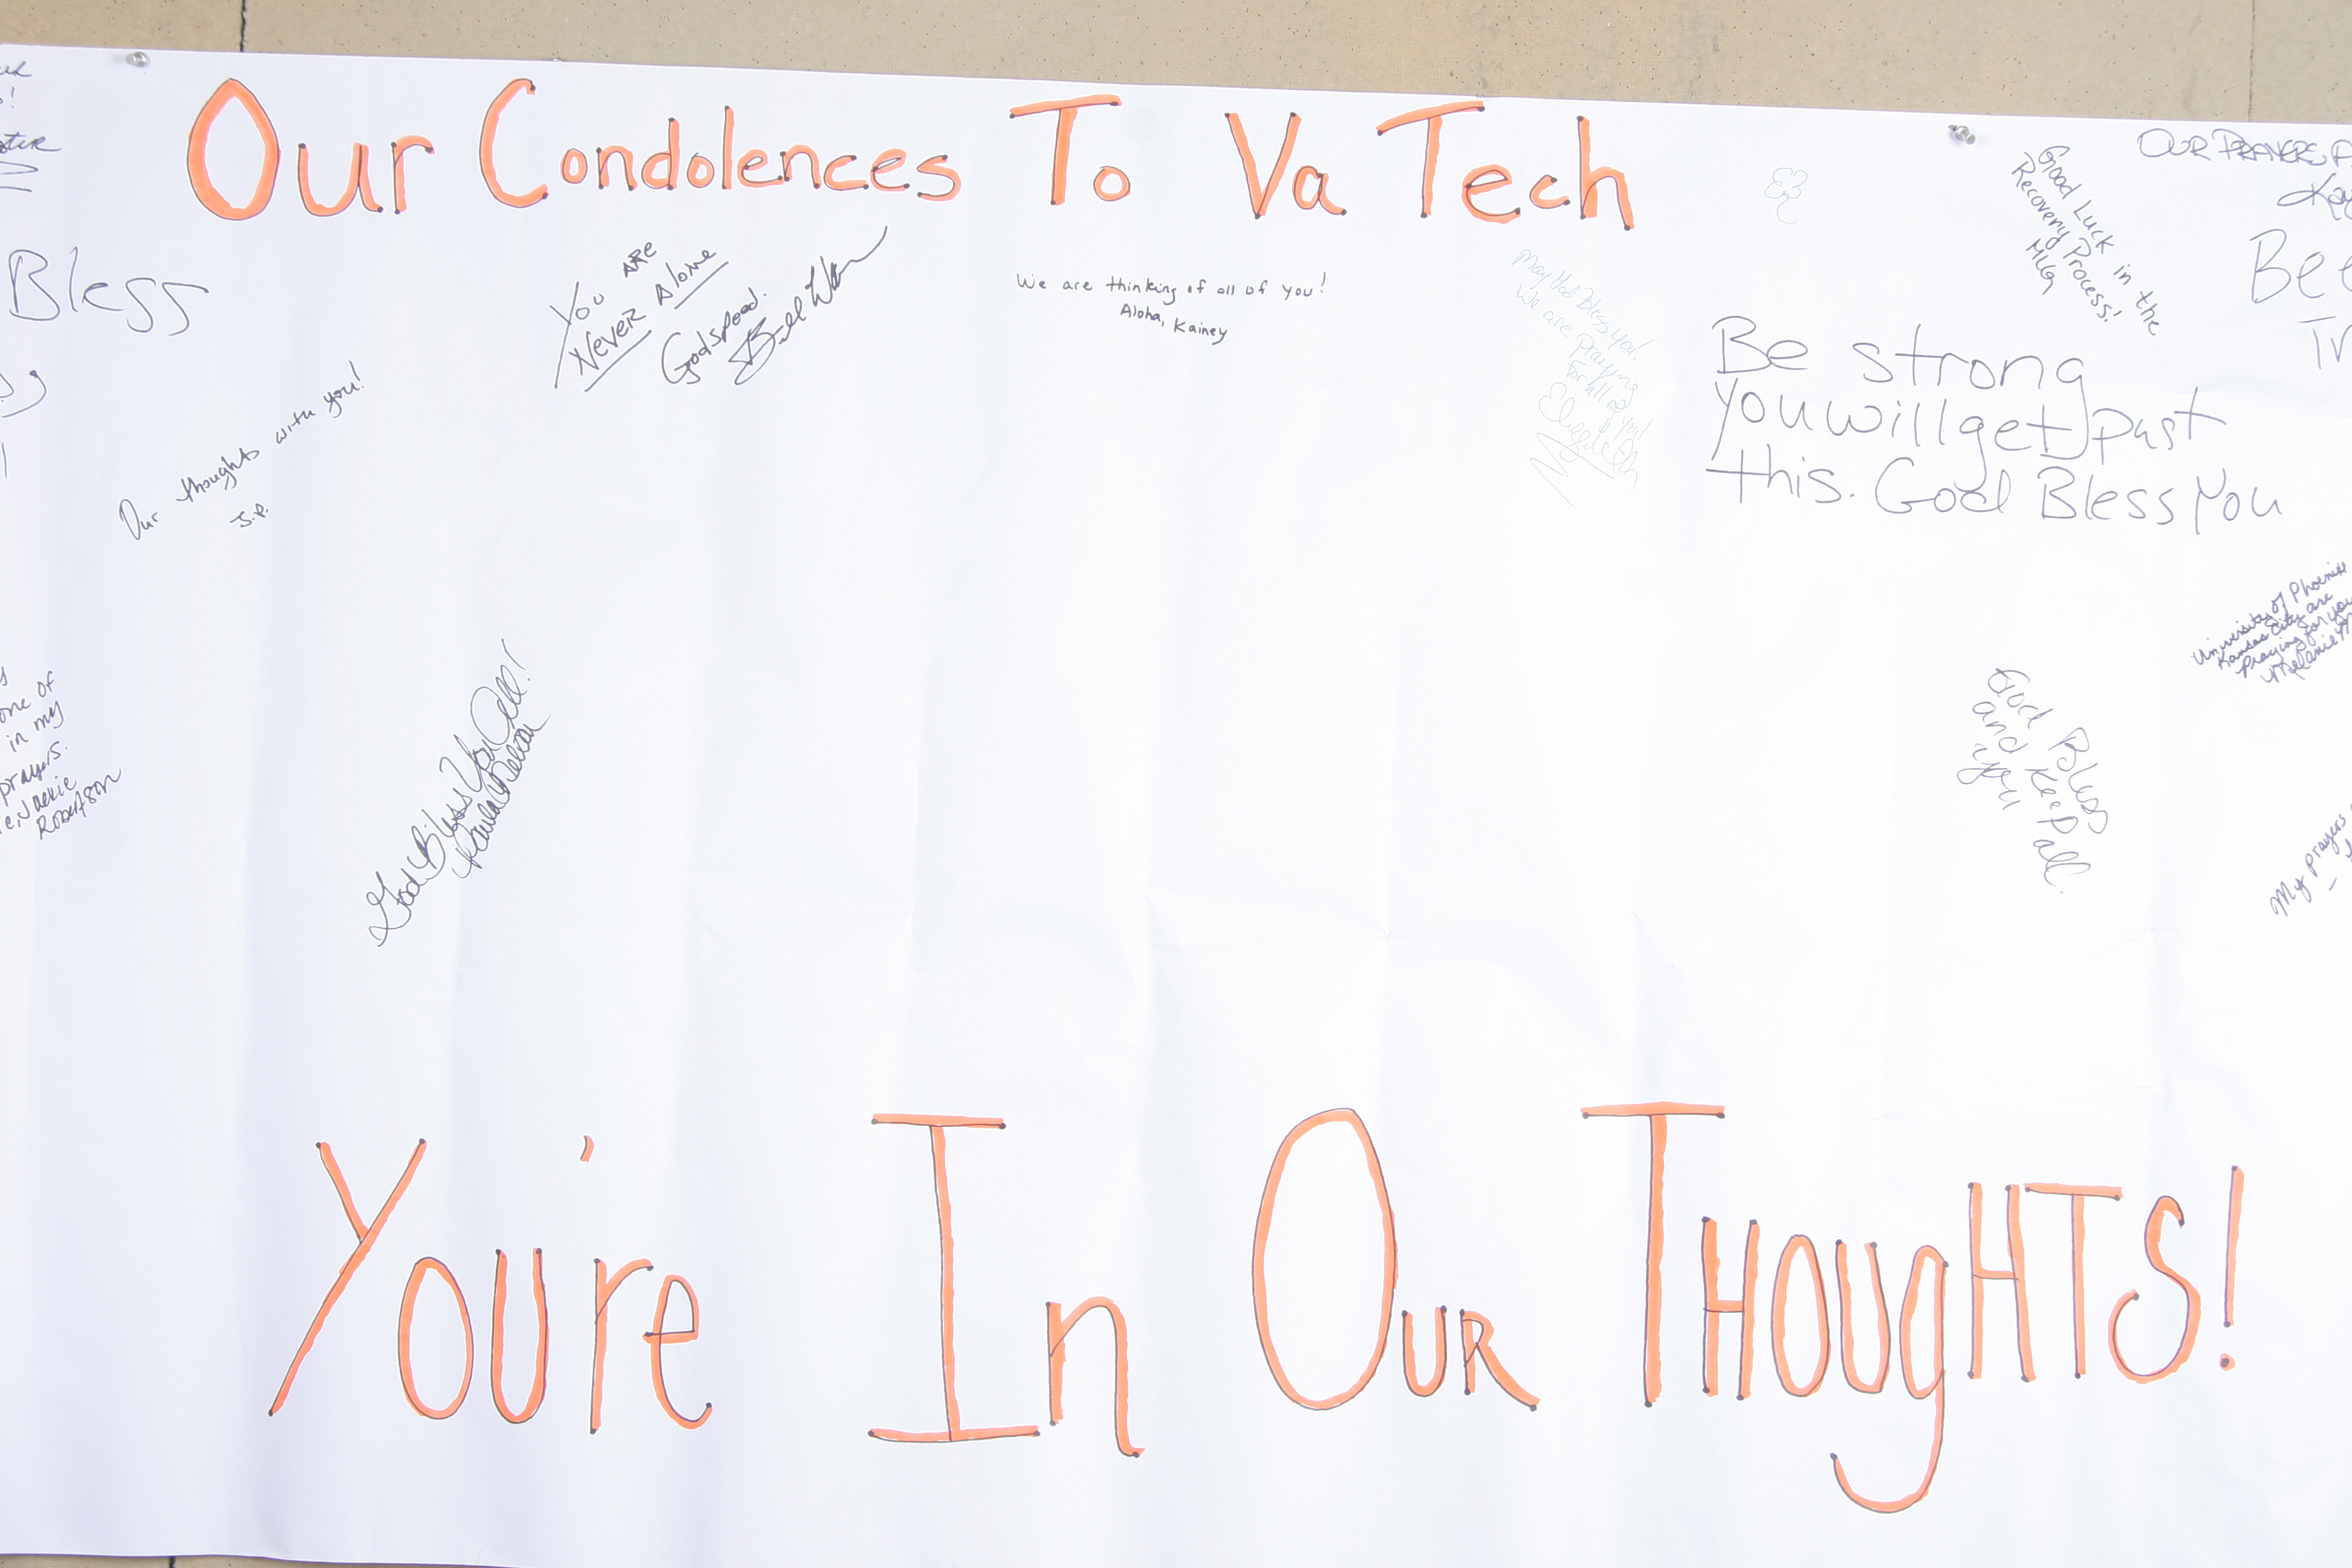 Our Condolences To Va Tech
Bless
You ARE
Never Alone
Godspeed.
We are thinking of all of you!
Aloha, Kainey
May God Bless you!
We are Praying
For All of you!
Elizabeth
Good Luck in the
Recovery Process!
OUR PRAYERS
Be strong
You will get past
this. God Bless You
Our thoughts with you!
J.P.
University of Phoenix
Kansas City are
Praying for you
Melanie
one of
in my
prayers.
Jackie
Robertson
God Bless You All!
God Bless
and Keep all
you
My prayers
You're In Our Thoughts!